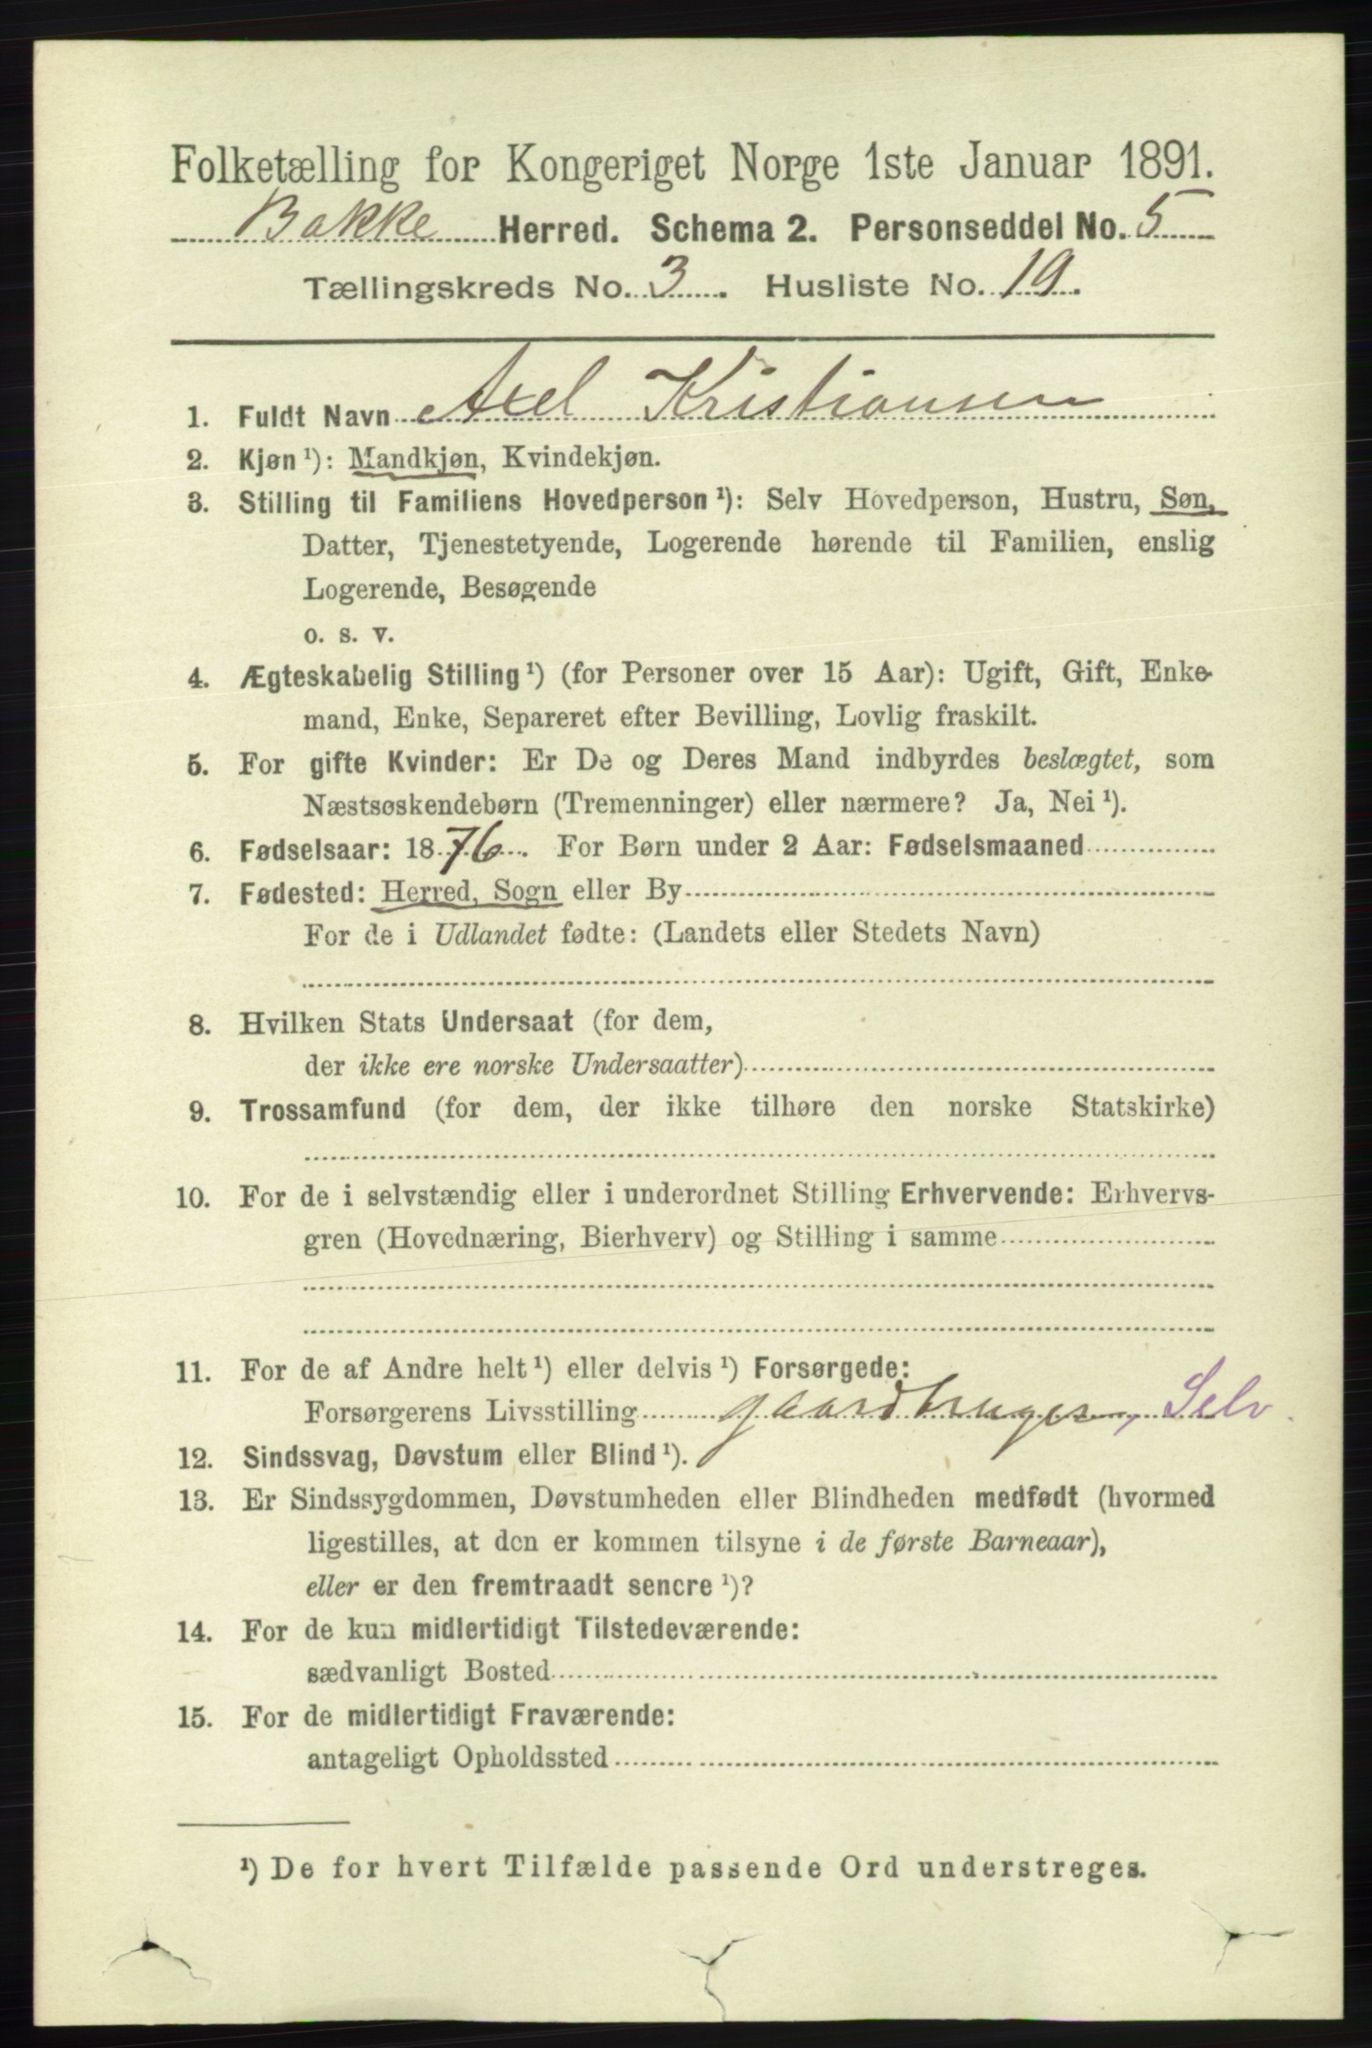 Folketælling for Kongeriget Norge 1ste Januar 1891.
Bakke Herred. Schema 2. Personseddel No. 5
Tællingskreds No. 3. Husliste No. 19.
1. Fuldt Navn Axel Kristiansen
2. Kjøn ¹): Mandkjøn, Kvindekjøn.
3. Stilling til Familiens Hovedperson ¹): Selv Hovedperson, Hustru, Søn,
Datter, Tjenestetyende, Logerende hørende til Familien, enslig
Logerende, Besøgende
o. s. v.
4. Ægteskabelig Stilling ¹) (for Personer over 15 Aar): Ugift, Gift, Enke-
mand, Enke, Separeret efter Bevilling, Lovlig fraskilt.
5. For gifte Kvinder: Er De og Deres Mand indbyrdes beslægtet, som
Næstsøskendebørn (Tremenninger) eller nærmere? Ja, Nei ¹).
6. Fødselsaar: 1876. For Børn under 2 Aar: Fødselsmaaned
7. Fødested: Herred, Sogn eller By
For de i Udlandet fødte: (Landets eller Stedets Navn)
8. Hvilken Stats Undersaat (for dem,
der ikke ere norske Undersaatter)
9. Trossamfund (for dem, der ikke tilhøre den norske Statskirke)
10. For de i selvstændig eller i underordnet Stilling Erhvervende: Erhvervs-
gren (Hovednæring, Bierhverv) og Stilling i samme
11. For de af Andre helt ¹) eller delvis ¹) Forsørgede:
Forsørgerens Livsstilling gaardbruger, Selv.
12. Sindssvag, Døvstum eller Blind ¹).
13. Er Sindssygdommen, Døvstumheden eller Blindheden medfødt (hvormed
ligestilles, at den er kommen tilsyne i de første Barneaar),
eller er den fremtraadt senere ¹)?
14. For de kun midlertidigt Tilstedeværende:
sædvanligt Bosted
15. For de midlertidigt Fraværende:
antageligt Opholdssted
¹) De for hvert Tilfælde passende Ord understreges.